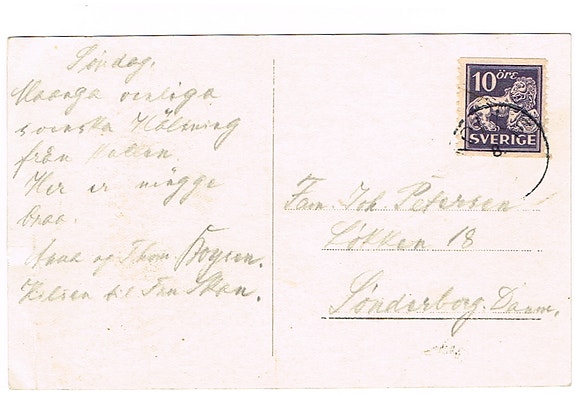 Søndag.
Maanga venliga
svenska Hälsning
från
Her er mygge
braa.
Anna og Thom Boysen.
Hilsen til Fru Skau.
10 ÖRE
SVERIGE
8
Fam. Joh Petersen
Løkken 18
Sønderborg. Danm.